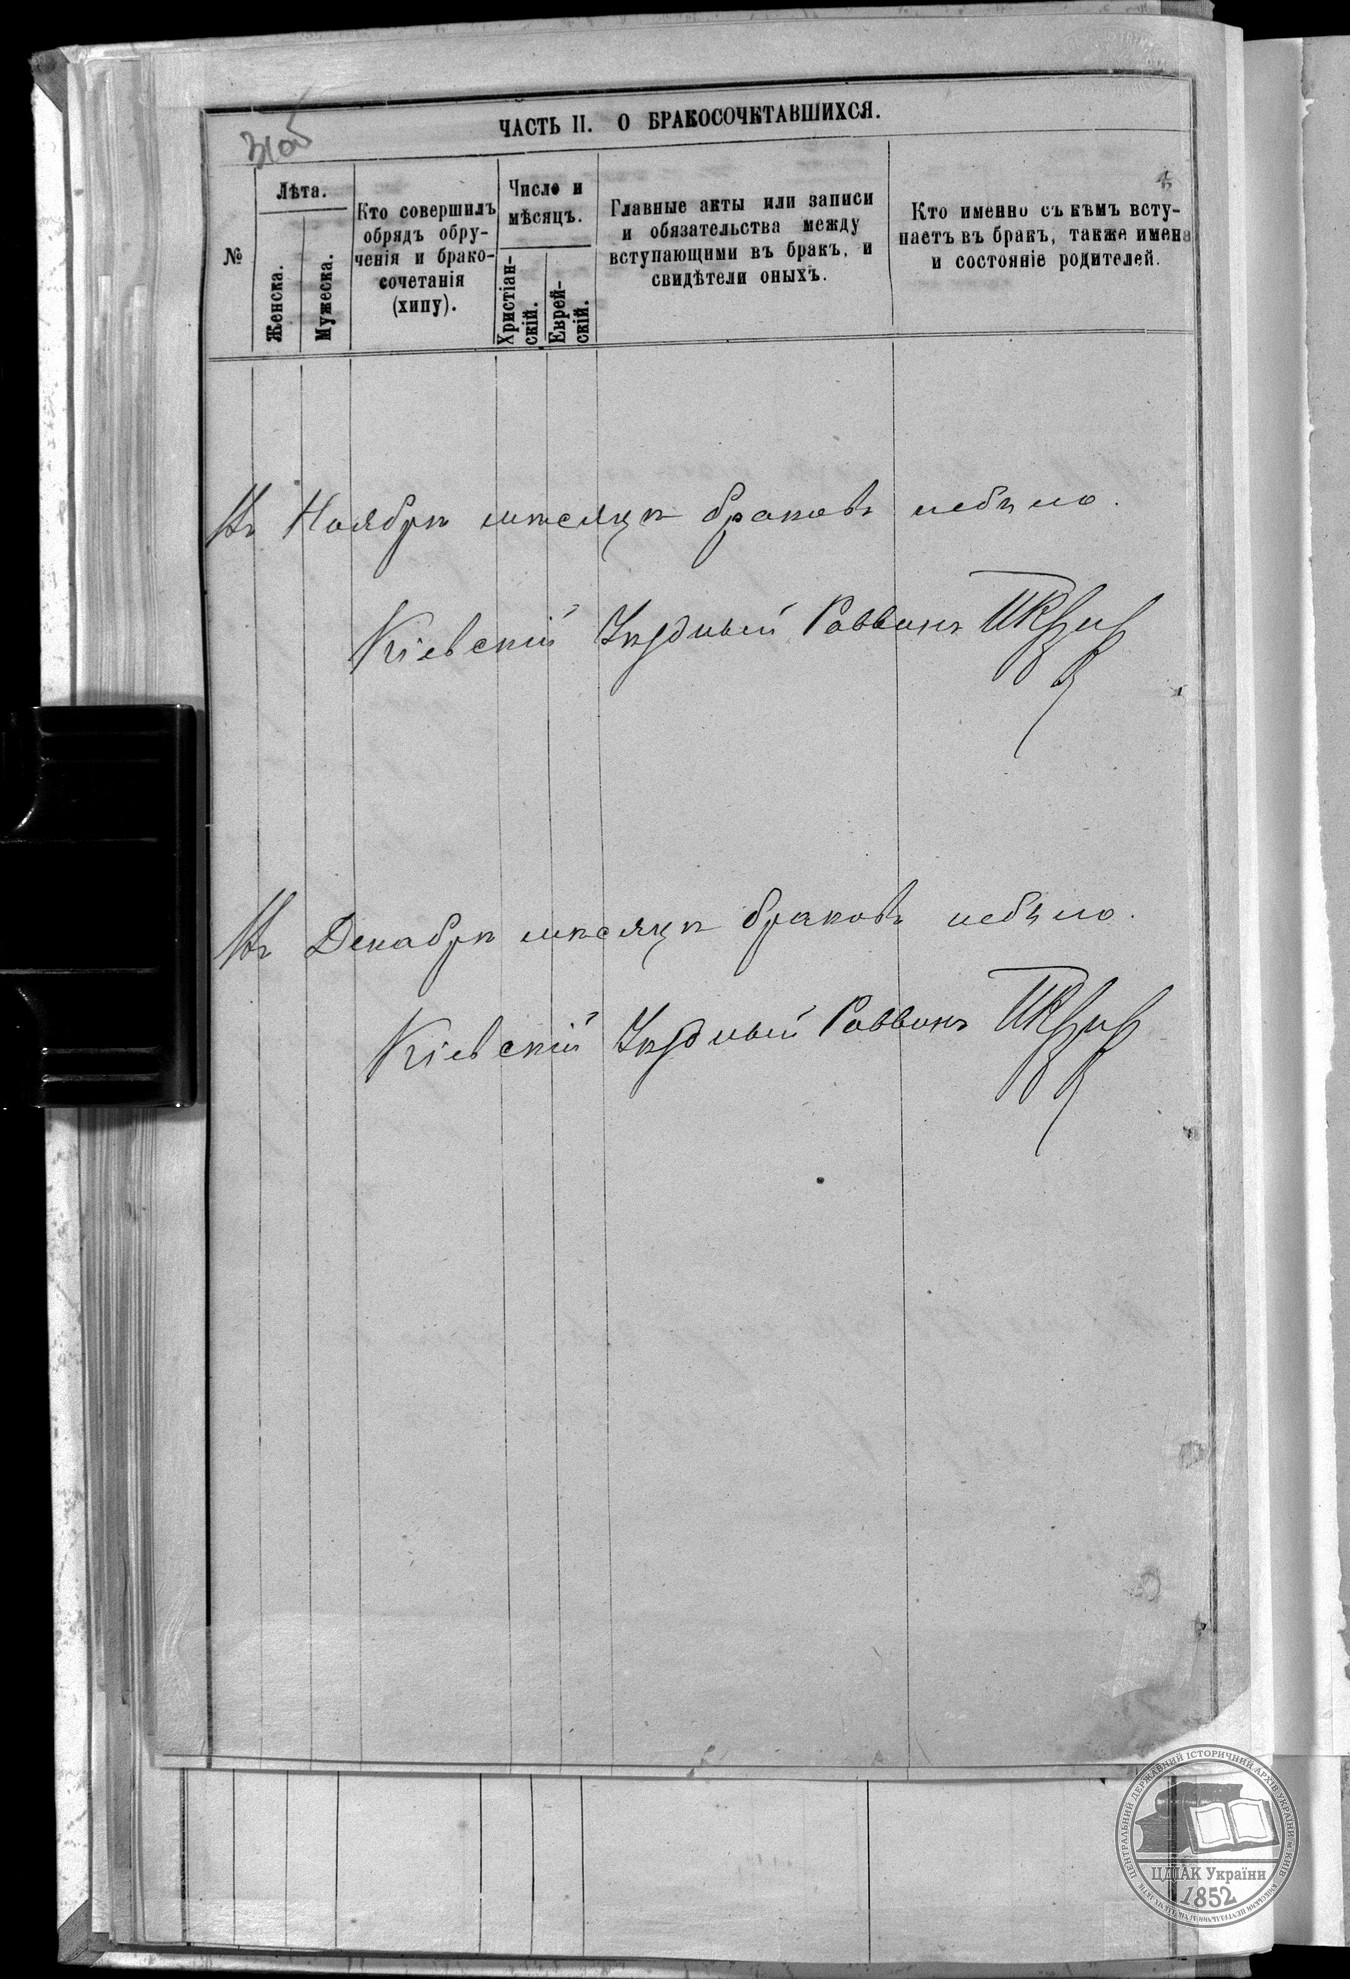 ЧАСТЬ II. О БРАКОСОЧЕТАВШИХСЯ.
№
Лѣта.
Женска.
Мужеска.
Кто совершилъ
обрядъ обру-
ченія и брако-
сочетанія
(хипу).
Число и
мѣсяцъ.
Христіан-
скій.
Еврей-
скій.
Главные акты или записи
и обязательства между
вступающими въ бракъ, и
свидѣтели оныхъ.
Кто именно съ кѣмъ всту-
паетъ въ бракъ, также имена
и состояніе родителей.
Въ Ноябрѣ мѣсяцѣ браковъ небыло.
Кіевскій Уѣздный Раввинъ
Въ Декабрѣ мѣсяцѣ браковъ небыло.
Кіевскій Уѣздный Раввинъ
ЦЕНТРАЛЬНИЙ ДЕРЖАВНИЙ ІСТОРИЧНИЙ АРХІВ УКРАЇНИ М.КИЇВ
ЦДІАК України
1852